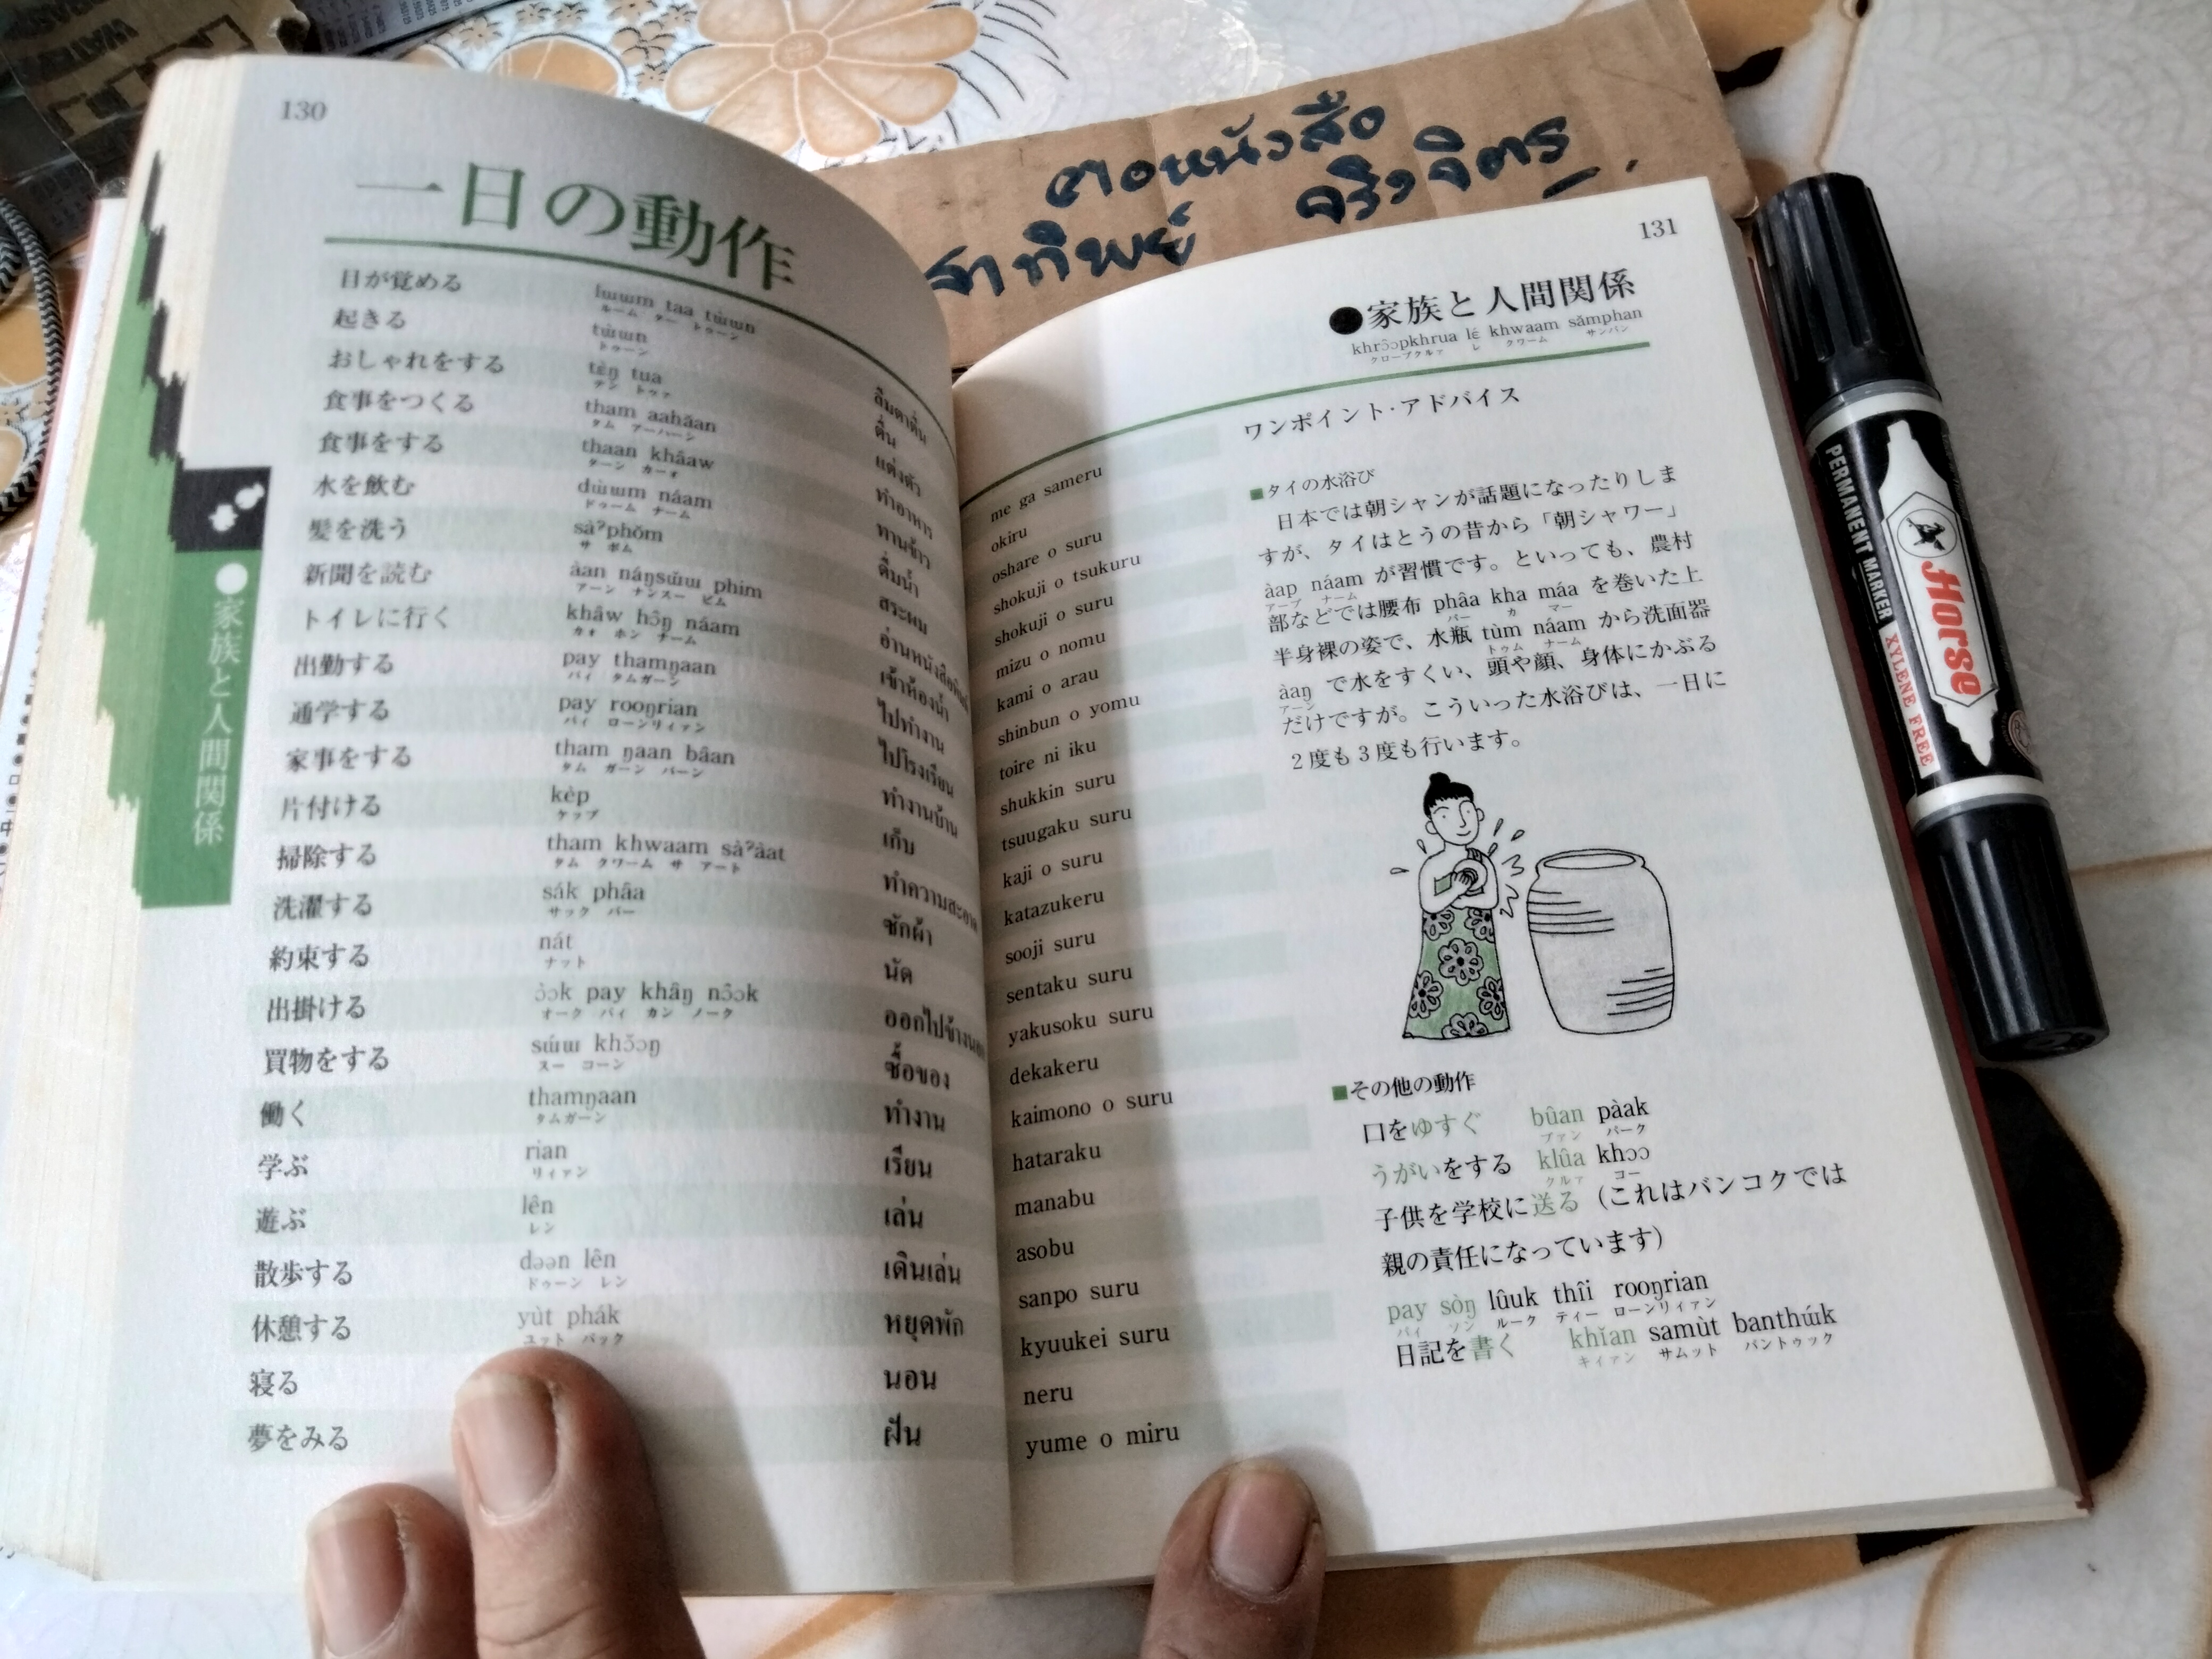 130
一日の動作
目が覚める
lɯɯm taa tɯ̀ɯn
ルーム ター トゥーン
ลืมตาตื่น
起きる
tɯ̀ɯn
トゥーン
ตื่น
おしゃれをする
tɛ̀ŋ tua
テン トゥァ
แต่งตัว
食事をつくる
tham aahǎan
タム アーハーン
ทำอาหาร
食事をする
thaan khâaw
ターン カーオ
ทานข้าว
水を飲む
dɯ̀ɯm náam
ドゥーム ナーム
ดื่มน้ำ
髪を洗う
sàʔphǒm
サ ポム
สระผม
新聞を読む
àan náŋsɯ̌ɯ phim
アーン ナンスー ピム
อ่านหนังสือพิมพ์
トイレに行く
khâw hɔ̂ŋ náam
カォ ホン ナーム
เข้าห้องน้ำ
出勤する
pay thamŋaan
パイ タムガーン
ไปทำงาน
通学する
pay rooŋrian
パイ ローンリィァン
ไปโรงเรียน
家事をする
tham ŋaan bâan
タム ガーン バーン
ทำงานบ้าน
片付ける
kèp
ケップ
เก็บ
掃除する
tham khwaam sàʔàat
タム クワーム サ アート
ทำความสะอาด
洗濯する
sák phâa
サック パー
ซักผ้า
約束する
nát
ナット
นัด
出掛ける
ɔ̀ɔk pay khâŋ nɔ̂ɔk
オーク パイ カン ノーク
ออกไปข้างนอก
買物をする
sɯ́ɯ khɔ̌ɔŋ
スー コーン
ซื้อของ
働く
thamŋaan
タムガーン
ทำงาน
学ぶ
rian
リィァン
เรียน
遊ぶ
lên
レン
เล่น
散歩する
dəən lên
ドゥーン レン
เดินเล่น
休憩する
yùt phák
ユット パック
หยุดพัก
寝る
นอน
夢をみる
ฝัน
●家族と人間関係
131
●家族と人間関係
khrɔ̂ɔpkhrua lɛ́ khwaam sǎmphan
クロープクルァ レ クワーム サンパン
me ga sameru
okiru
oshare o suru
shokuji o tsukuru
shokuji o suru
mizu o nomu
kami o arau
shinbun o yomu
toire ni iku
shukkin suru
tsuugaku suru
kaji o suru
katazukeru
sooji suru
sentaku suru
yakusoku suru
dekakeru
kaimono o suru
hataraku
manabu
asobu
sanpo suru
kyuukei suru
neru
yume o miru
ワンポイント・アドバイス
■タイの水浴び
日本では朝シャンが話題になったりしま
すが、タイはとうの昔から「朝シャワー」
àap náam が習慣です。といっても、農村
アープ ナーム
部などでは腰布 phâa kha máa を巻いた上
パー カ マー
半身裸の姿で、水瓶 tùm náam から洗面器
トゥム ナーム
àaŋ で水をすくい、頭や顔、身体にかぶる
アーン
だけですが。こういった水浴びは、一日に
2度も3度も行います。
■その他の動作
口をゆすぐ bûan pàak
ブァン パーク
うがいをする klûa khɔɔ
クルァ コー
子供を学校に送る (これはバンコクでは
親の責任になっています)
pay sòŋ lûuk thîi rooŋrian
パイ ソン ルーク ティー ローンリィァン
日記を書く khǐan samùt banthɯ́k
キィァン サムット バントゥック
ศาทิพย์
PERMANENT MARKER
XYLENE FREE
Horse